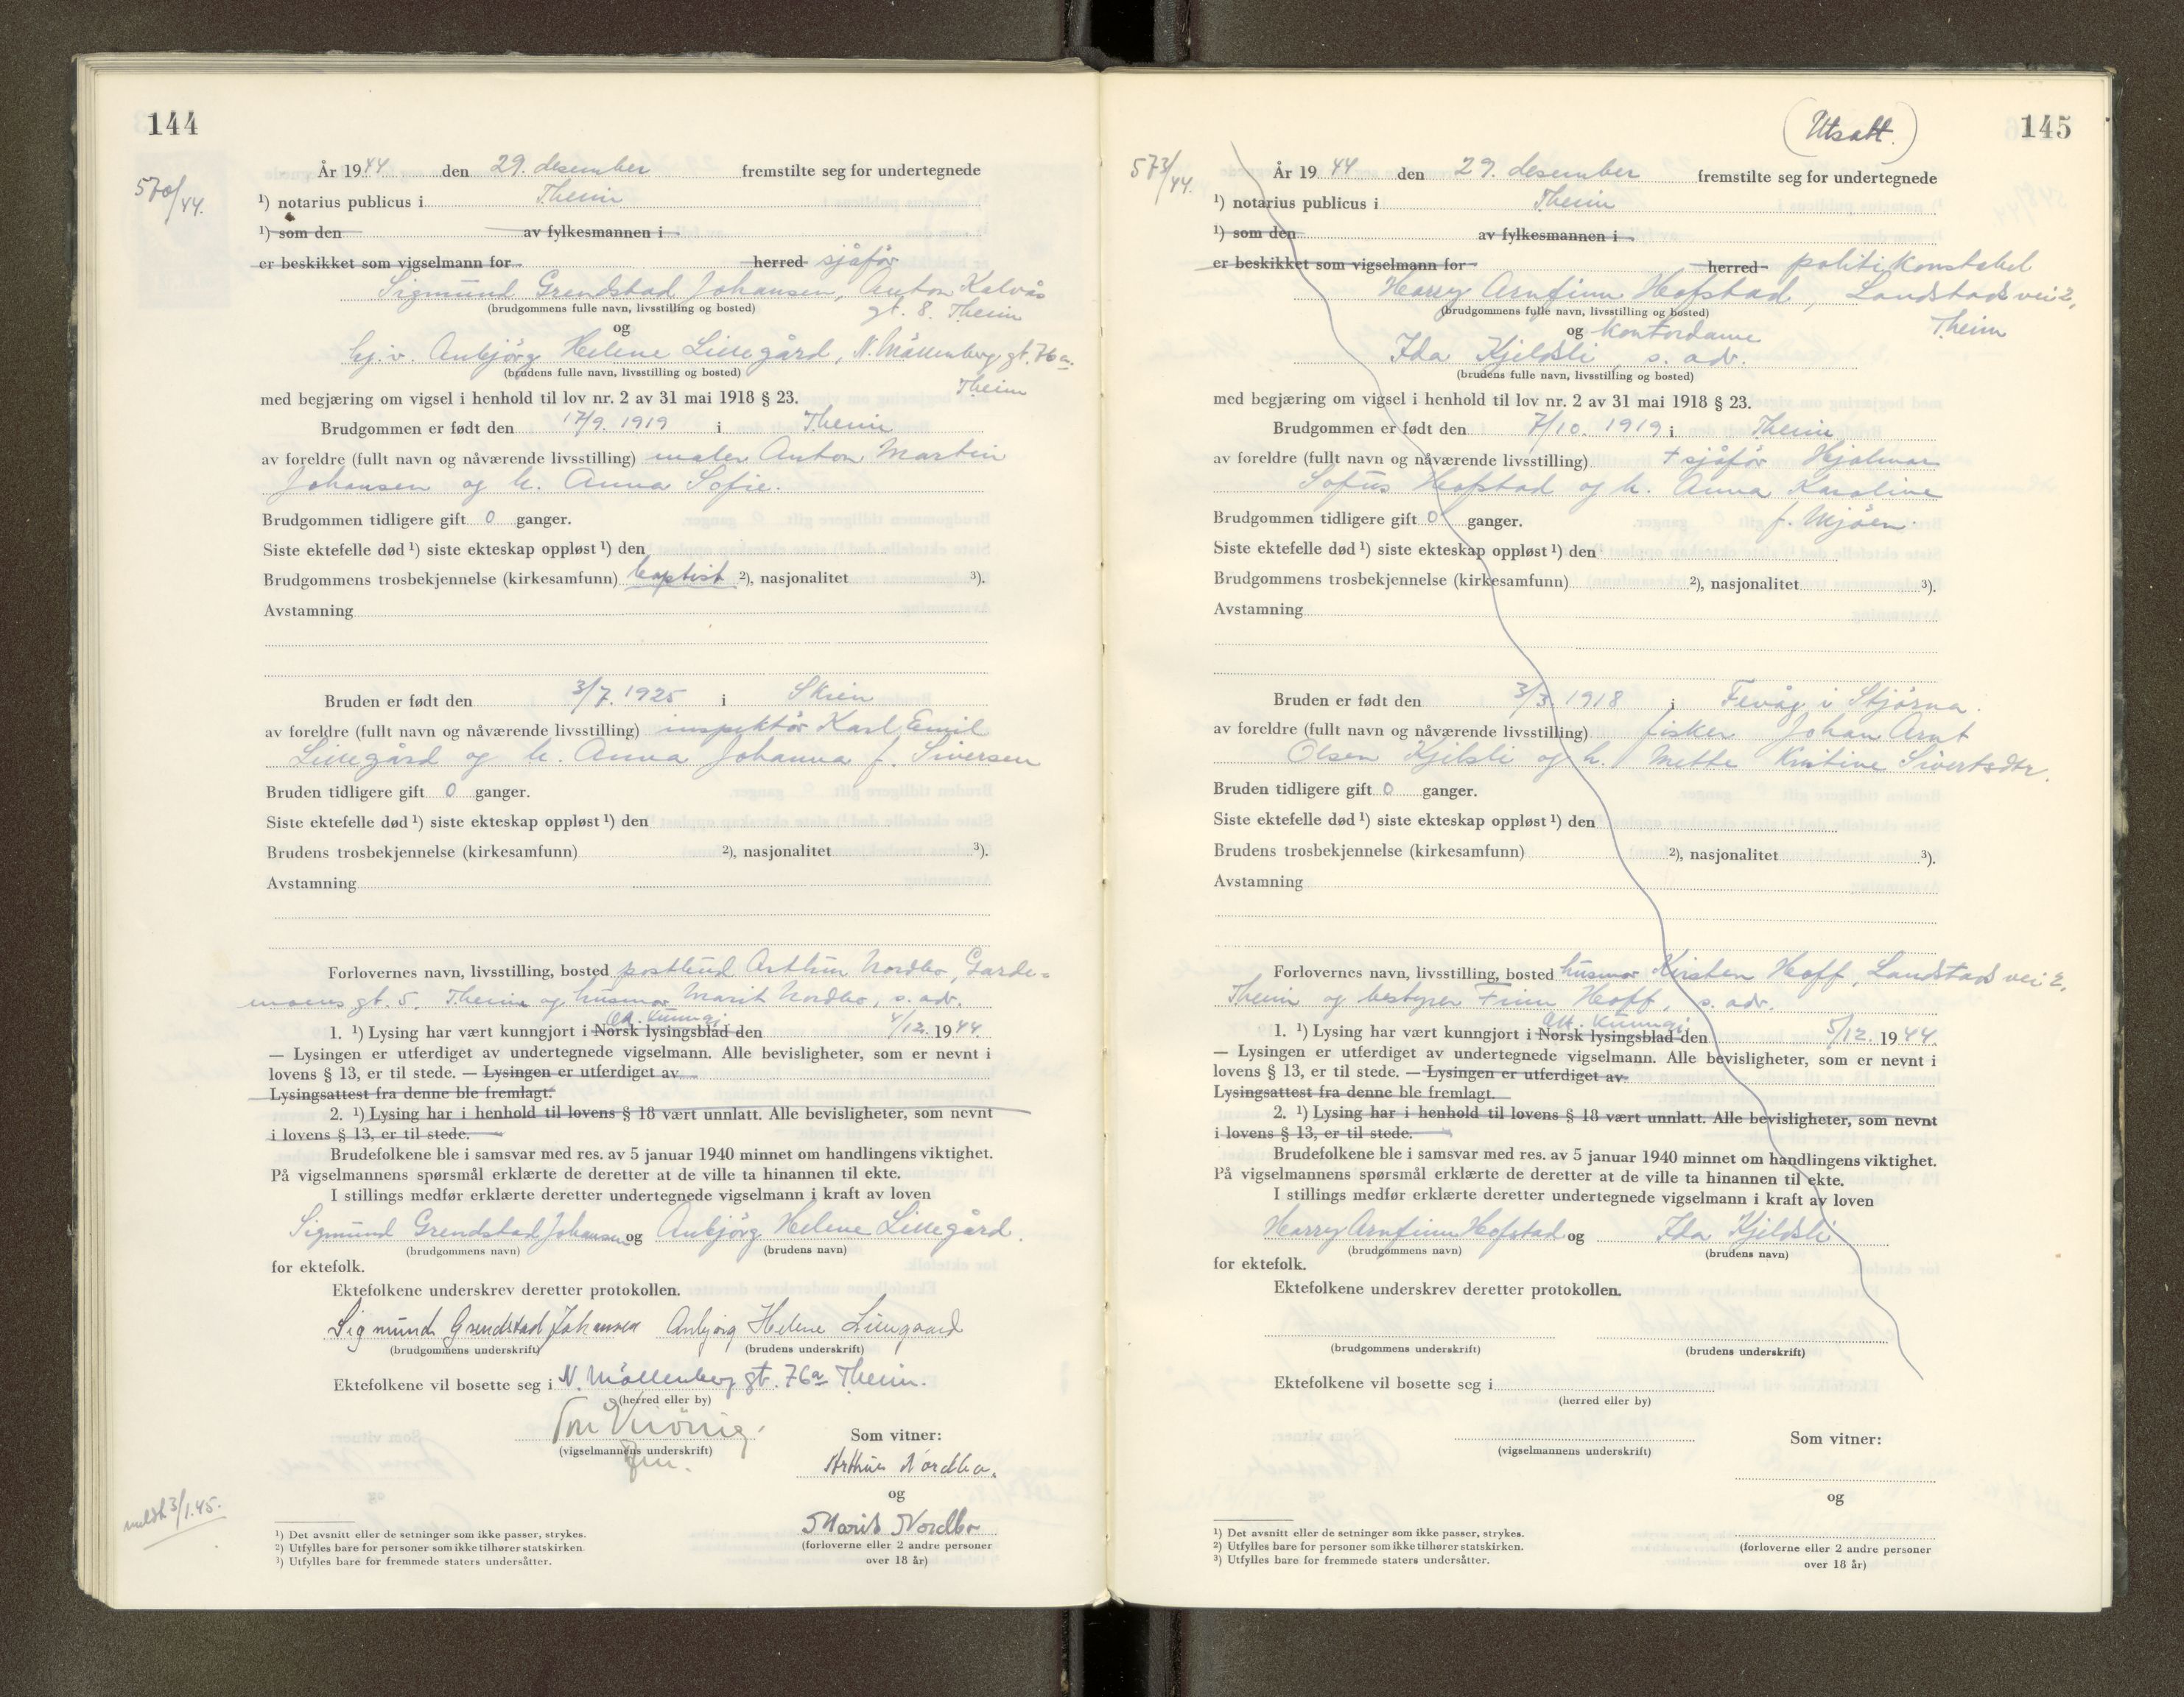 144
570/44.
År 1944 den 29. desember fremstilte seg for undertegnede
¹) notarius publicus i Theim
¹) som den av fylkesmannen i
er beskikket som vigselmann for herred sjåfør
Sigmund Grendstad Johansen, Anton Kalvås
gt. 8. Theim
(brudgommens fulle navn, livsstilling og bosted)
og
hj.v. Anbjörg Helene Lillegård, N. Möllenberg gt. 76a.
Theim
(brudens fulle navn, livsstilling og bosted)
med begjæring om vigsel i henhold til lov nr. 2 av 31 mai 1918 § 23.
Brudgommen er født den 17/9. 1919 i Theim
av foreldre (fullt navn og nåværende livsstilling) maler Anton Martin
Johansen og h. Anna Sofie.
Brudgommen tidligere gift 0 ganger.
Siste ektefelle død ¹) siste ekteskap oppløst ¹) den
Brudgommens trosbekjennelse (kirkesamfunn) baptist ²), nasjonalitet ³).
Avstamning
Bruden er født den 3/7. 1925 i Skien
av foreldre (fullt navn og nåværende livsstilling) inspektör Karl Emil
Lillegård og h. Anna Johanna f. Siversen
Bruden tidligere gift 0 ganger.
Siste ektefelle død ¹) siste ekteskap oppløst ¹) den
Brudens trosbekjennelse (kirkesamfunn) ²), nasjonalitet ³).
Avstamning
Forlovernes navn, livsstilling, bosted postbud Arthur Nordbo, Garde-
moens gt. 5, Theim og husmor Marit Nordbo, s. adr.
1. ¹) Lysing har vært kunngjort i Norsk lysingsblad den 4/12. 1944.
— Lysingen er utferdiget av undertegnede vigselmann. Alle bevisligheter, som er nevnt i
lovens § 13, er til stede. — Lysingen er utferdiget av
Lysingsattest fra denne ble fremlagt.
2. ¹) Lysing har i henhold til lovens § 18 vært unnlatt. Alle bevisligheter, som nevnt
i lovens § 13, er til stede.
Brudefolkene ble i samsvar med res. av 5 januar 1940 minnet om handlingens viktighet.
På vigselmannens spørsmål erklærte de deretter at de ville ta hinannen til ekte.
I stillings medfør erklærte deretter undertegnede vigselmann i kraft av loven
Sigmund Grendstad Johansen og Anbjörg Helene Lillegård.
(brudgommens navn) (brudens navn)
for ektefolk.
Ektefolkene underskrev deretter protokollen.
Sigmund Grendstad Johansen Anbjörg Helene Lillegaard
(brudgommens underskrift) (brudens underskrift)
Ektefolkene vil bosette seg i N. Möllenberg gt. 76a Theim.
(herred eller by)
(vigselmannens underskrift)
Som vitner:
Arthur Nordbo.
og
Marit Nordbo
(forloverne eller 2 andre personer
over 18 år)
meldt 3/1.45.
¹) Det avsnitt eller de setninger som ikke passer, strykes.
²) Utfylles bare for personer som ikke tilhører statskirken.
³) Utfylles bare for fremmede staters undersåtter.
(Utsatt.)
145
573/44.
År 1944 den 29. desember fremstilte seg for undertegnede
¹) notarius publicus i Theim
¹) som den av fylkesmannen i
er beskikket som vigselmann for herred politikonstabel
Harry Arnfinn Hofstad, Landstads vei 2,
Theim
(brudgommens fulle navn, livsstilling og bosted)
og kontordame
Ida Kjeldsli s. adr.
(brudens fulle navn, livsstilling og bosted)
med begjæring om vigsel i henhold til lov nr. 2 av 31 mai 1918 § 23.
Brudgommen er født den 7/10. 1919 i Theim
av foreldre (fullt navn og nåværende livsstilling) + sjåför Hjalmar
Sofus Hofstad og h. Anna Karoline
f. Mjöen.
Brudgommen tidligere gift 0 ganger.
Siste ektefelle død ¹) siste ekteskap oppløst ¹) den
Brudgommens trosbekjennelse (kirkesamfunn) ²), nasjonalitet ³).
Avstamning
Bruden er født den 3/3. 1918 i Fevåg i Stjörna.
av foreldre (fullt navn og nåværende livsstilling) fisker Johan Arnt
Olsen Kjelsli og h. Mette Kristine Sivertsdtr.
Bruden tidligere gift 0 ganger.
Siste ektefelle død ¹) siste ekteskap oppløst ¹) den
Brudens trosbekjennelse (kirkesamfunn) ²), nasjonalitet ³).
Avstamning
Forlovernes navn, livsstilling, bosted husmor Kirsten Hoff, Landstads vei 2,
Theim og bestyrer Finn Hoff, s. adr.
1. ¹) Lysing har vært kunngjort i Norsk lysingsblad den 5/12. 1944.
— Lysingen er utferdiget av undertegnede vigselmann. Alle bevisligheter, som er nevnt i
lovens § 13, er til stede. — Lysingen er utferdiget av
Lysingsattest fra denne ble fremlagt.
2. ¹) Lysing har i henhold til lovens § 18 vært unnlatt. Alle bevisligheter, som nevnt
i lovens § 13, er til stede.
Brudefolkene ble i samsvar med res. av 5 januar 1940 minnet om handlingens viktighet.
På vigselmannens spørsmål erklærte de deretter at de ville ta hinannen til ekte.
I stillings medfør erklærte deretter undertegnede vigselmann i kraft av loven
Harry Arnfinn Hofstad og Ida Kjeldsli
(brudgommens navn) (brudens navn)
for ektefolk.
Ektefolkene underskrev deretter protokollen.
(brudgommens underskrift) (brudens underskrift)
Ektefolkene vil bosette seg i
(herred eller by)
(vigselmannens underskrift)
Som vitner:
og
(forloverne eller 2 andre personer
over 18 år)
¹) Det avsnitt eller de setninger som ikke passer, strykes.
²) Utfylles bare for personer som ikke tilhører statskirken.
³) Utfylles bare for fremmede staters undersåtter.